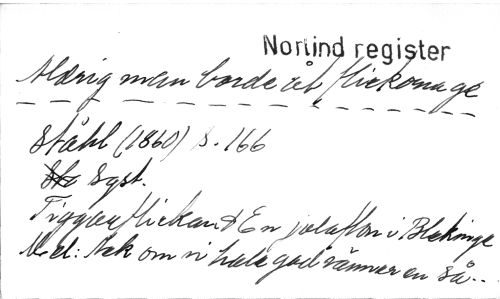 Norlind register
Aldrig man borde åt flickorna ge
Ståhl (1860) s. 166
Sgst.
Tiggarflickan & En julafton i Blekinge
Mel: Ack om vi hade god vänner en så...